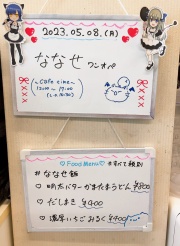 2023.05.08.(月)
ななせ ワンオペ
〜Cafe time〜
12:00〜17:00
♡Food Menu♡ ※すべて税別
#ななせ飯
♡明太バターかまたまうどん ¥800
♡だしまき ¥400
♡濃厚いちごみるく ¥700